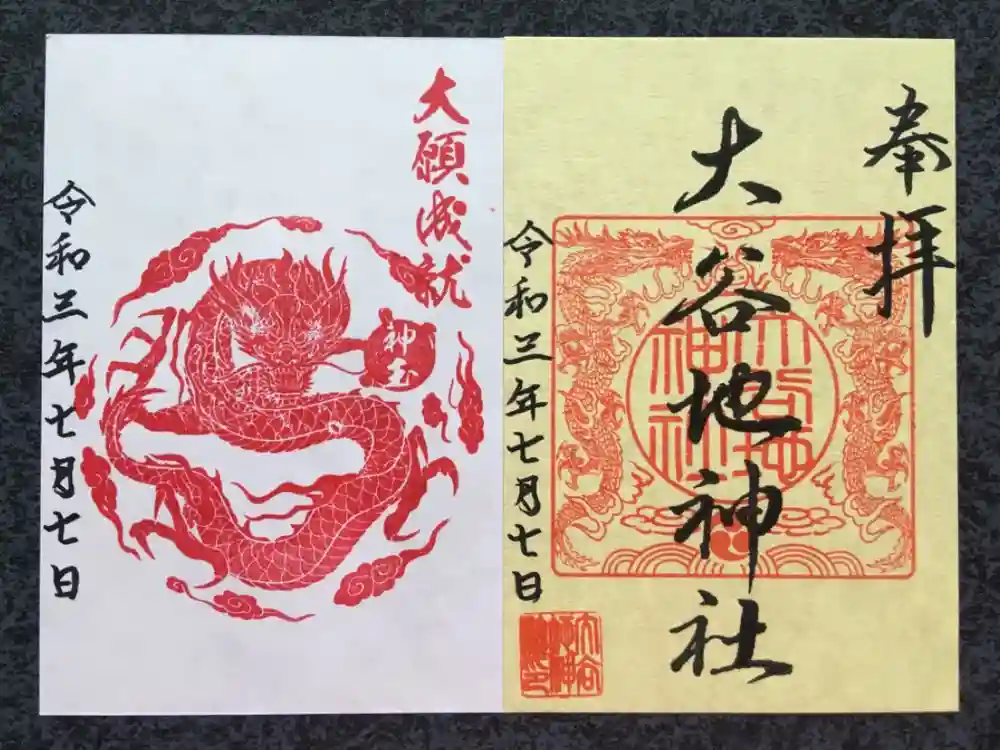 奉拝
大谷地神社
令和三年七月七日
大谷地神社
大願成就
神玉
令和三年七月七日